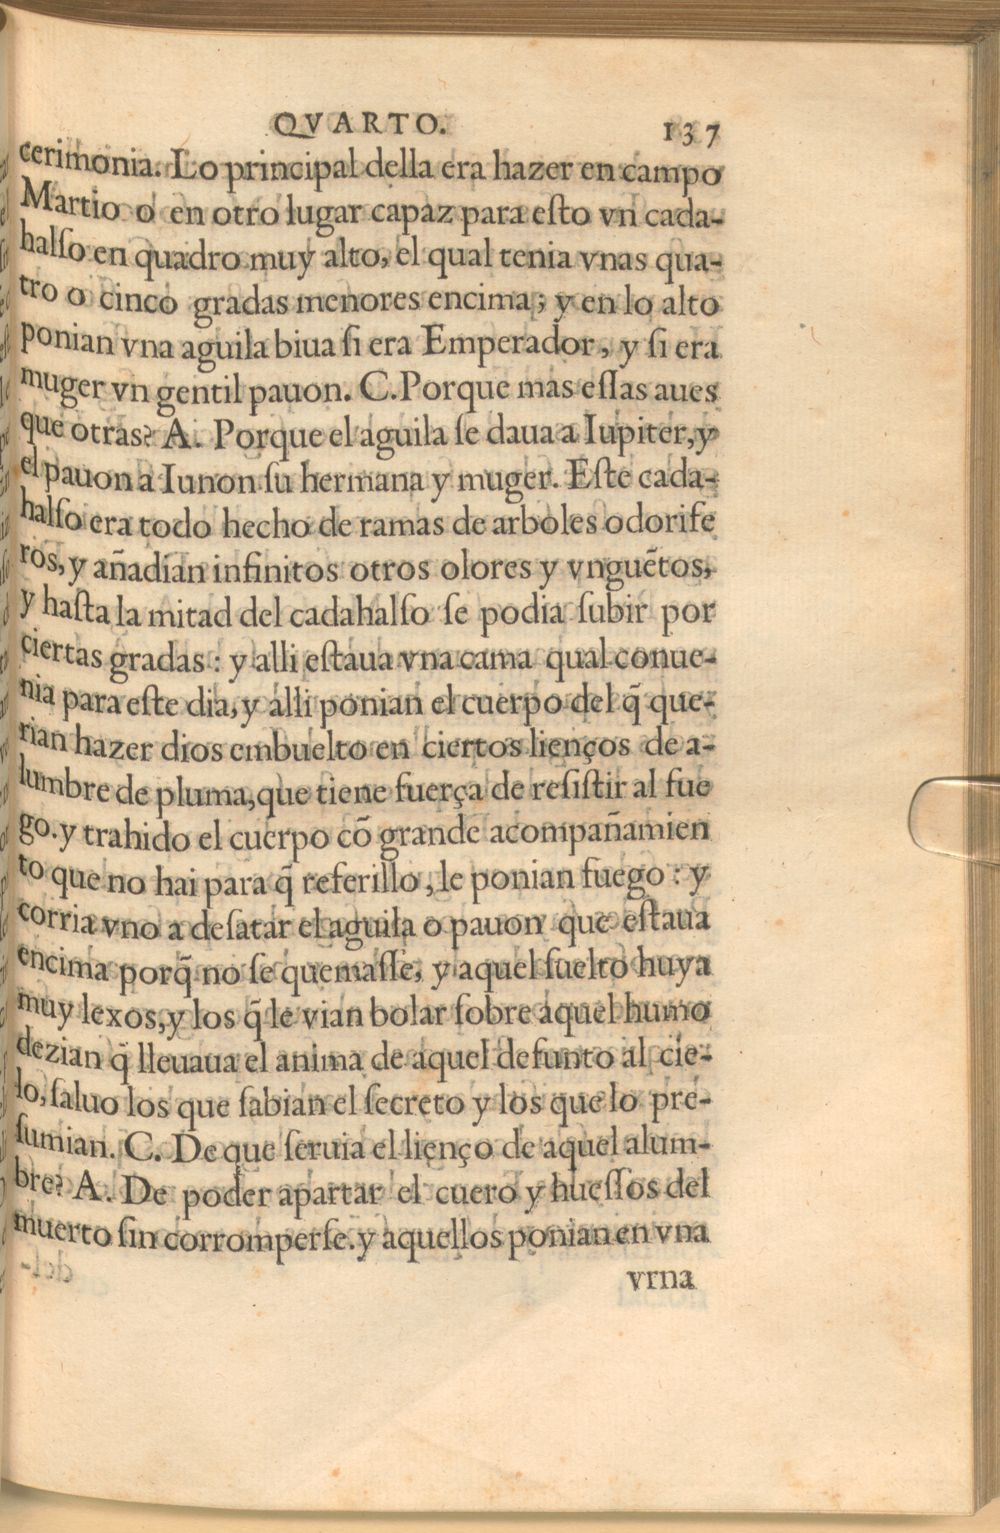 QVARTO. 137
cerimonia. Lo principal della era hazer en campo
Martio o en otro lugar capaz para eſto vn cada-
halſo en quadro muy alto, el qual tenia vnas qua-
tro o cinco gradas menores encima; y en lo alto
ponian vna aguila biua ſi era Emperador, y ſi era
muger vn gentil pauon. C. Porque mas eſſas aues
que otras? A. Porque el aguila ſe daua a Iupiter, y
el pauon a Iunon ſu hermana y muger. Eſte cada-
halſo era todo hecho de ramas de arboles odorife
ros, y añadian infinitos otros olores y vnguẽtos,
y haſta la mitad del cadahalſo ſe podia ſubir por
ciertas gradas: y alli eſtaua vna cama qual conue-
nia para eſte dia, y alli ponian el cuerpo del q̃ que-
rian hazer dios embuelto en ciertos lienços de a-
lumbre de pluma, que tiene fuerça de reſiſtir al fue
go. y trahido el cuerpo cõ grande acompañamien
to que no hai para q̃ referillo, le ponian fuego: y
corria vno a deſatar el aguila o pauon que eſtaua
encima porq̃ no ſe quemaſſe, y aquel ſuelto huya
muy lexos, y los q̃ le vian bolar ſobre aquel humo
dezian q̃ lleuaua el anima de aquel defunto al cie-
lo, ſaluo los que ſabian el ſecreto y los que lo pre-
ſumian. C. De que ſeruia el lienço de aquel alum-
bre? A. De poder apartar el cuero y hueſſos del
muerto ſin corromperſe. y aquellos ponian en vna
vrna